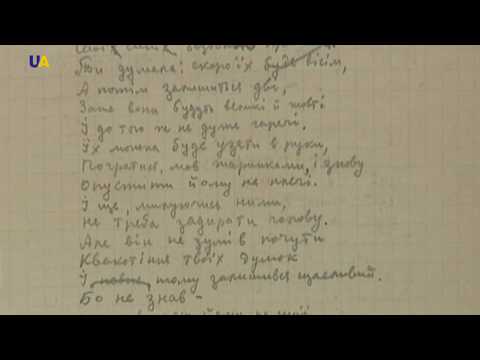 UA
Ти думала: скоро їх буде вісім,
А потім залишиться дві,
Зате вони будуть великі й жовті
І до того ж не дуже гарячі.
Їх можна буде узяти в руки,
Погратися, мов жаринками, і знову
Опустити йому на плечі.
І ще, милуючись ними,
Не треба задирати голову.
Але він не зумів почути
Квакотіння твоїх думок
І тому залишився щасливий.
Бо не знав –